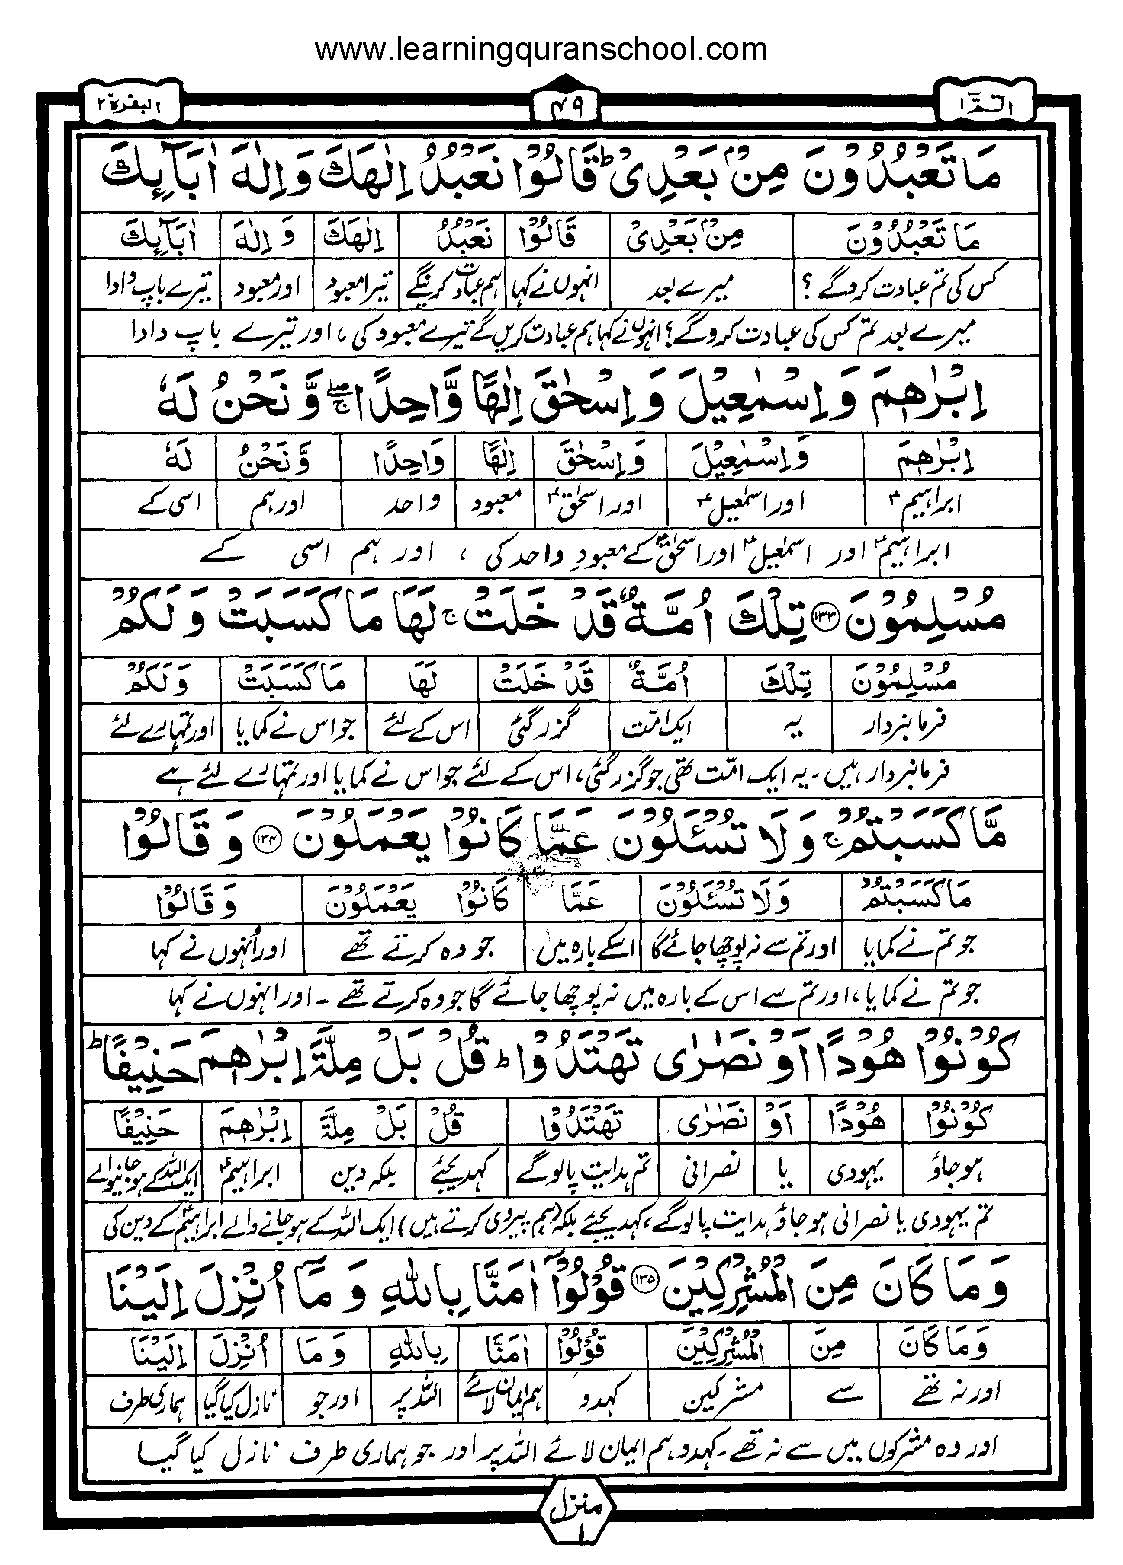 www.learningquranschool.com
الٓمّٓ ١ ۴۹ البقرة ٢
مَا تَعْبُدُوْنَ مِنْۢ بَعْدِیْ ؕ قَالُوْا نَعْبُدُ اِلٰهَكَ وَ اِلٰهَ اٰبَآىِٕكَ
مَا تَعْبُدُوْنَ مِنْۢ بَعْدِیْ قَالُوْا نَعْبُدُ اِلٰهَكَ وَ اِلٰهَ اٰبَآىِٕكَ
کس کی تم عبادت کرو گے ؟ میرے بعد انہوں نے کہا ہم عبادت کرینگے تیرا معبود اور معبود تیرے باپ دادا
میرے بعد تم کس کی عبادت کرو گے؟ انہوں نے کہا ہم عبادت کریں گے تیرے معبود کی ، اور تیرے باپ دادا
اِبْرٰهٖمَ وَ اِسْمٰعِیْلَ وَ اِسْحٰقَ اِلٰهًا وَّاحِدًا ۖۚ وَّ نَحْنُ لَهٗ
اِبْرٰهٖمَ وَ اِسْمٰعِیْلَ وَ اِسْحٰقَ اِلٰهًا وَاحِدًا وَّ نَحْنُ لَهٗ
ابراہیمؑ اور اسمٰعیلؑ اور اسحٰقؑ معبود واحد اور ہم اسی کے
ابراہیمؑ اور اسمٰعیلؑ اور اسحٰقؑ کے معبودِ واحد کی ، اور ہم اسی کے
مُسْلِمُوْنَ ۱۳۳ تِلْكَ اُمَّةٌ قَدْ خَلَتْ ۚ لَهَا مَا كَسَبَتْ وَ لَكُمْ
مُسْلِمُوْنَ تِلْكَ اُمَّةٌ قَدْ خَلَتْ لَهَا مَا كَسَبَتْ وَ لَكُمْ
فرمانبردار یہ ایک امّت گزر گئی اس کے لئے جو اس نے کمایا اور تمہارے لئے
فرمانبردار ہیں ۔ یہ ایک امّت تھی جو گزر گئی ، اس کے لئے جو اس نے کمایا اور تمہارے لئے ہے
مَّا كَسَبْتُمْ ۚ وَ لَا تُسْـَٔلُوْنَ عَمَّا كَانُوْا یَعْمَلُوْنَ ۱۳۴ وَ قَالُوْا
مَا كَسَبْتُمْ وَ لَا تُسْـَٔلُوْنَ عَمَّا كَانُوْا یَعْمَلُوْنَ وَ قَالُوْا
جو تم نے کمایا اور تم سے نہ پوچھا جائے گا اسکے بارہ میں جو وہ کرتے تھے اور اُنہوں نے کہا
جو تم نے کمایا ، اور تم سے اس کے بارہ میں نہ پوچھا جائے گا جو وہ کرتے تھے ۔ اور انہوں نے کہا
كُوْنُوْا هُوْدًا اَوْ نَصٰرٰی تَهْتَدُوْا ؕ قُلْ بَلْ مِلَّةَ اِبْرٰهٖمَ حَنِیْفًا ؕ
كُوْنُوْا هُوْدًا اَوْ نَصٰرٰی تَهْتَدُوْا قُلْ بَلْ مِلَّةَ اِبْرٰهٖمَ حَنِیْفًا
ہو جاؤ یہودی یا نصرانی تم ہدایت پالو گے کہدیجئے بلکہ دین ابراہیمؑ ایک اللہ کے ہو جانیوالے
تم یہودی یا نصرانی ہو جاؤ ہدایت پالو گے ، کہدیجئے بلکہ (ہم پیروی کرتے ہیں) ایک اللہ کے ہو جانے والے ابراہیمؑ کے دین کی
وَ مَا كَانَ مِنَ الْمُشْرِكِیْنَ ۱۳۵ قُوْلُوْۤا اٰمَنَّا بِاللّٰهِ وَ مَاۤ اُنْزِلَ اِلَیْنَا
وَ مَا كَانَ مِنَ الْمُشْرِكِیْنَ قُوْلُوْۤا اٰمَنَّا بِاللّٰهِ وَ مَا اُنْزِلَ اِلَیْنَا
اور نہ تھے سے مشرکین کہدو ہم ایمان لائے اللہ پر اور جو نازل کیا گیا ہماری طرف
اور وہ مشرکوں میں سے نہ تھے ۔ کہدو ہم ایمان لائے اللہ پر اور جو ہماری طرف نازل کیا گیا
منزل ١